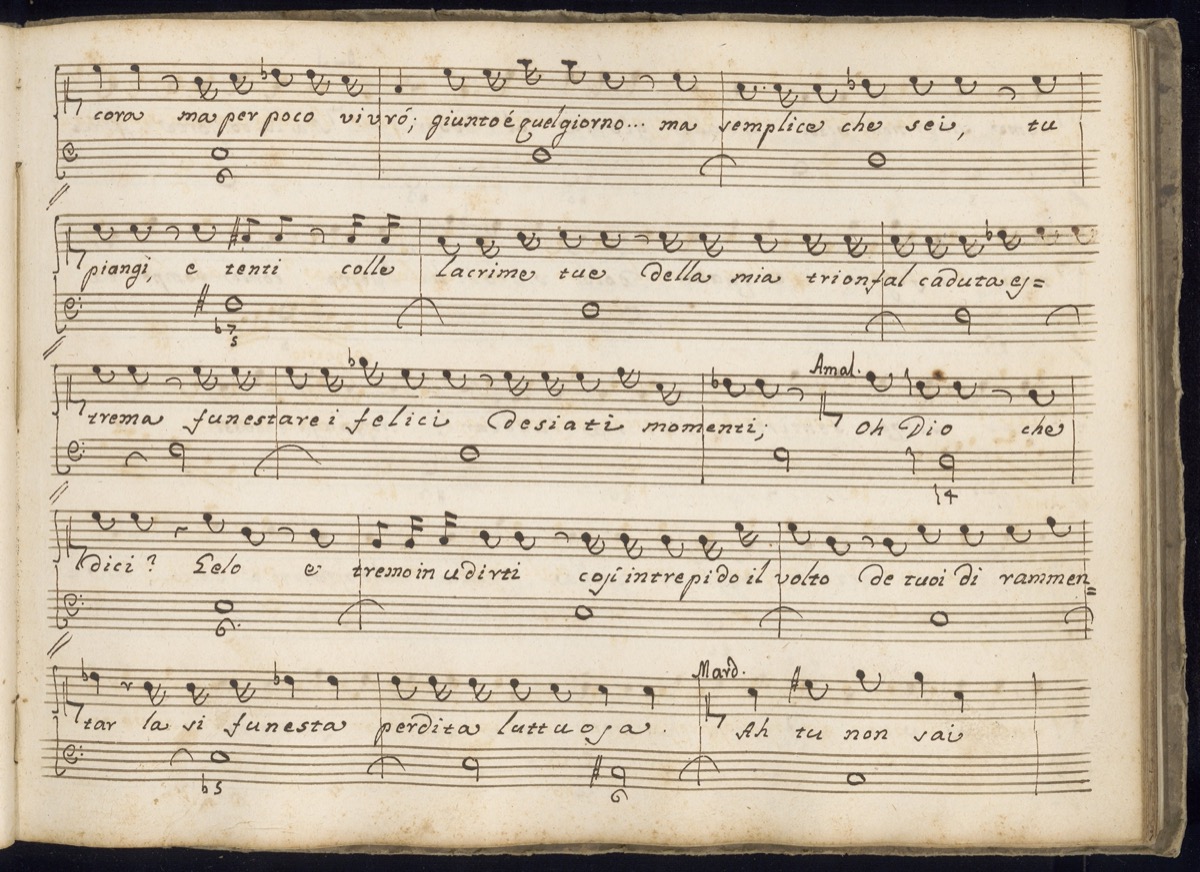 cora ma per poco vivró; giunto é quel giorno... ma semplice che sei, tu
6
piangi, e tenti colle lacrime tue della mia trionfal caduta es=
b7
5
Amal.
trema funestare i felici desiati momenti; Oh Dio che
4
dici? Gelo e tremo in udirti così intrepido il volto de tuoi di rammen=
6
Mard.
tar la si funesta perdita luttuosa. Ah tu non sai
b5
6